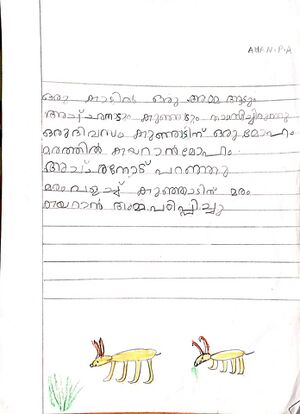 ഒരു കാട്ടിൽ ഒരു അമ്മ ആടും
അച്ഛനാടും കുഞ്ഞാടും താമസിച്ചിരുന്നു
ഒരു ദിവസം കുഞ്ഞാടിന് ഒരു മോഹം
മരത്തിൽ കയറാൻ മോഹം.
അച്ഛനോട് പറഞ്ഞു
മരം വളച്ച് കുഞ്ഞാടിന് മരം
കയറാൻ അമ്മ പഠിപ്പിച്ചു